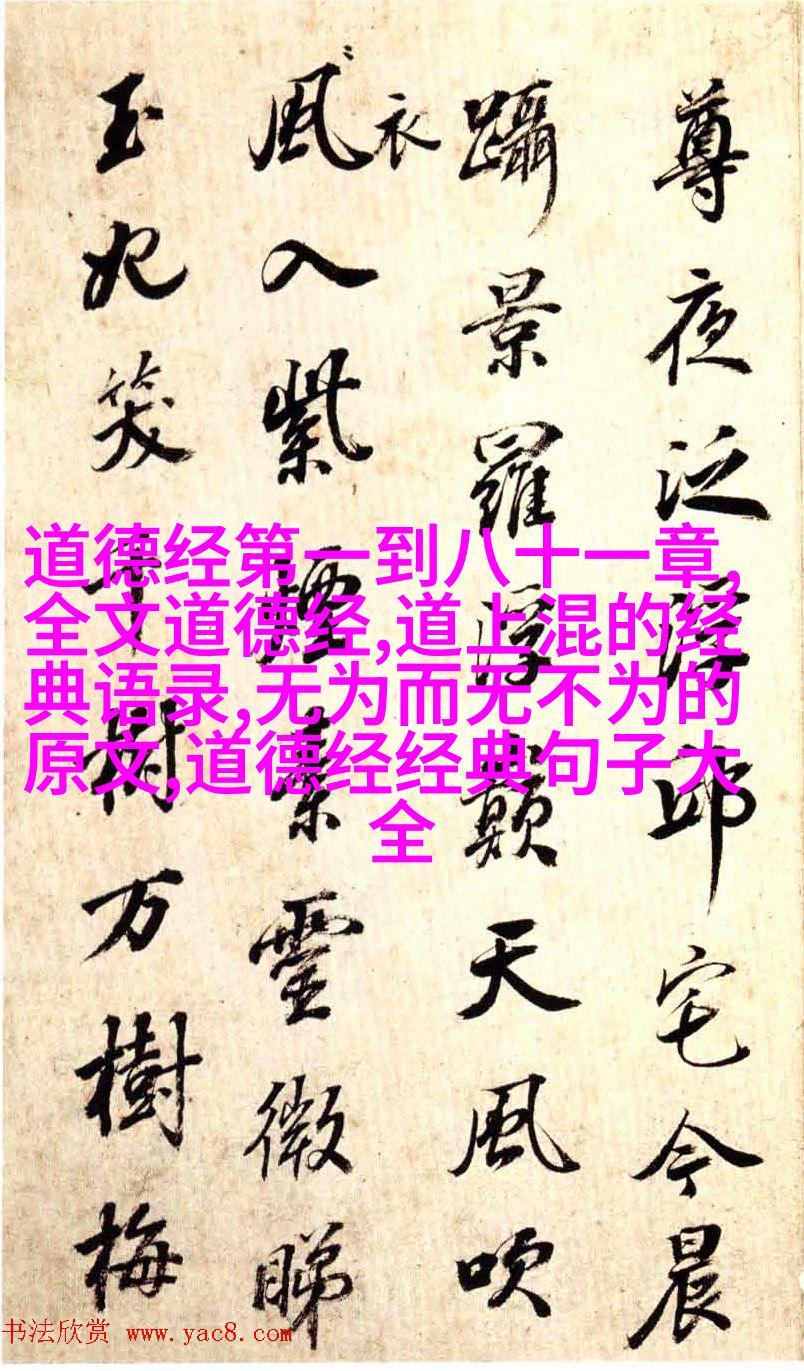 尊夜泛浮邱宅今晨
躡景羅浮顛天風吹
衣
風入紫煙素霊微睇
玉妃笑千樹万樹梅
道德经第一到八十一章,
全文道德经,道上混的经
典语录,无为而无不为的
原文,道德经经典句子大
全
书法欣赏 www.yac8.com